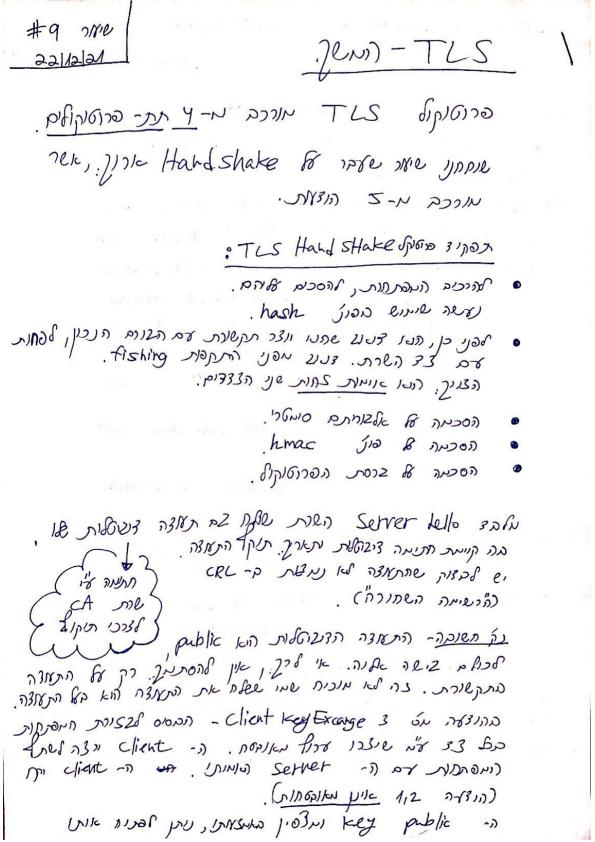 שיעור 9#
22/12/21
TLS - המשך.
פרוטוקול TLS מורכב מ-4 תת-פרוטוקולים.
שוחחנו שיעור שעבר על HandShake ארוך, אשר
מורכב מ-5 הודעות.
תפקיד פרוטוקול TLS Hand SHake:
להרכיב המפתחות, להסכים עליהם.
נעשה שימוש בפונק' hash.
לפני כן, הוא דואג שהוא יוצר תקשורת עם הגורם הנכון, לפחות
עם צד השרת. דואג מפני התקפות fishing.
הצורך: הוא אימות זהות שני הצדדים.
הסכמה על אלגוריתם סימטרי.
הסכמה על פונק' hmac.
הסכמה על גרסת הפרוטוקול.
מלבד Server hello השרת שולח גם תעודה דיגיטלית שלו.
בה קיימת חתימה דיגיטלית, תאריך תוקף התעודה.
יש לבדוק שהתעודה לא נמצאת ב-CRL
("הרשימה השחורה").
חתימה ע"י
שרת CA
לצרכי תיקוף
נק' חשובה- התעודה הדיגיטלית היא public,
לכולם גישה אליה. אי לכך, אין להסתמך רק על התעודה
בתקשורת. זה לא מוכיח שמי ששלח את התעודה הוא בעל התעודה.
בהודעה מס' 3 Client Key Excange - הבסיס לגזירת המפתחות
בכל צד ע"מ שיצרו ערוץ מאובטח. ה-Client ירצה לשתף
המפתחות עם ה-Server האמיתי. ה-client יקח
(הודעה 1,2 אינן מאובטחות).
ה-public key ומצפין באמצעותו, ניתן לפתיח אותו